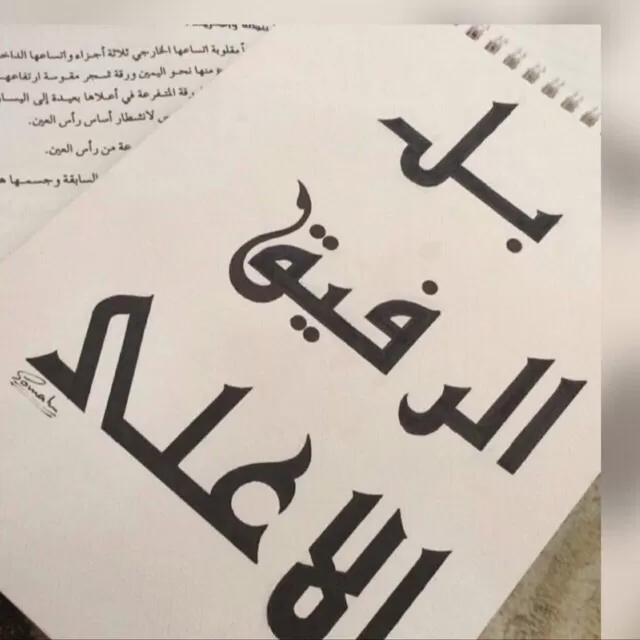 مقلوبة اتساعها الخارجي ثلاثة أجزاء واتساعها
منها نحو اليمين ورقة شجر مقوسة ارتفاعها
المتفرعة في أعلاها بعيدة إلى
لانشطار أساس رأس العين.
من رأس العين.
السابقة وجسمها
بل
الرفيق
الاعلى